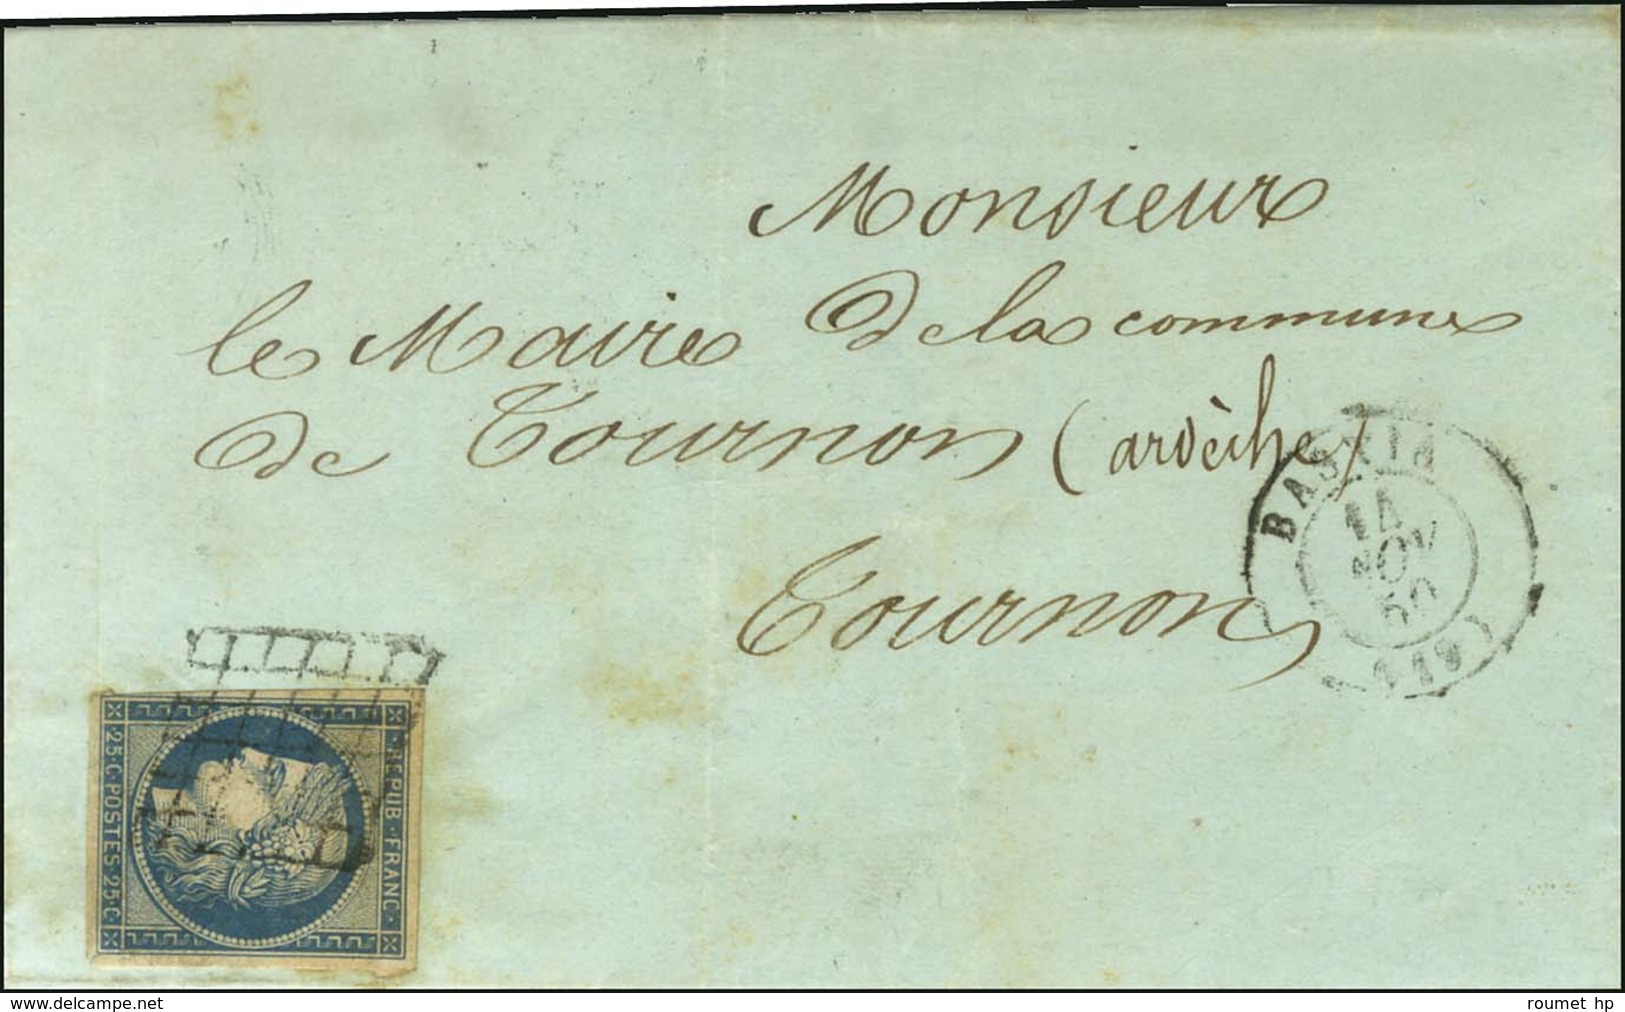 Monsieur
le Maire de la commune
de Tournon (ardèche)
Tournon
BASTIA
14
NOV
50
(19)
REPUB·FRANC·
25·C·POSTES·25·C·
www.delcampe.net
roumet hp